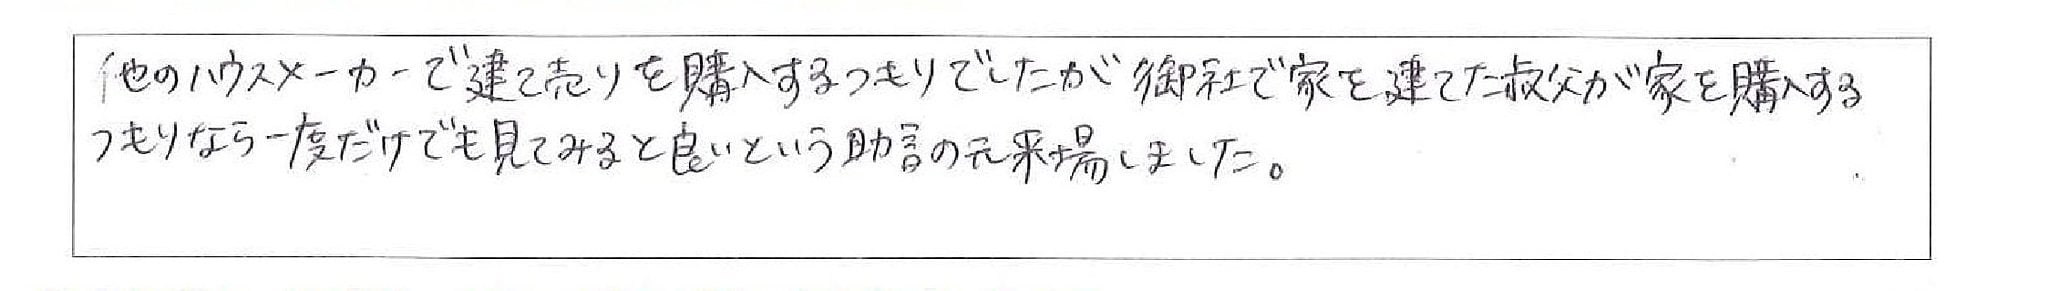 他のハウスメーカーで建て売りを購入するつもりでしたが御社で家を建てた叔父が家を購入する
つもりなら一度だけでも見てみると良いという助言の元来場しました。